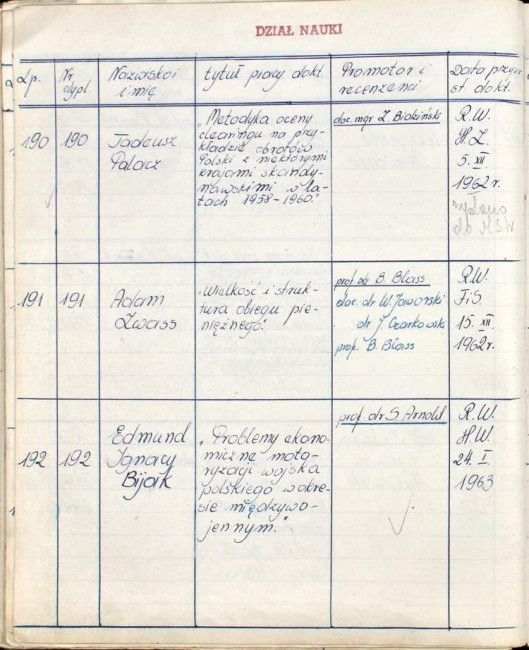 DZIAŁ NAUKI
Lp.
Nr
dypl.
Nazwisko i
imię
tytuł pracy dokt.
Promotor i
recenzenci
Data przyzn.
st. dokt.
190
190
Tadeusz
Palacz
"Metodyka oceny
clearingu na przy-
kładzie obrotów
Polski z niektórymi
krajami skandy-
nawskimi w la-
tach 1958-1960."
doc. mgr Z.
R.W.
H.Z.
5. XII
1962 r.
191
191
Adam
Zwass
"Wielkość i struk-
tura obiegu pie-
niężnego".
prof. dr B. Blass
doc. dr W. Jaworski
dr J. Czarkowski
prof. B. Blass
R.W.
FiS
15. XII.
1962 r.
192
192
Edmund
Ignacy
Bijak
"Problemy ekono-
miczne moto-
ryzacji wojska
polskiego w okre-
sie międzywo-
jennym."
prof. dr S. Arnold
R.W.
H.W.
24. I.
1963